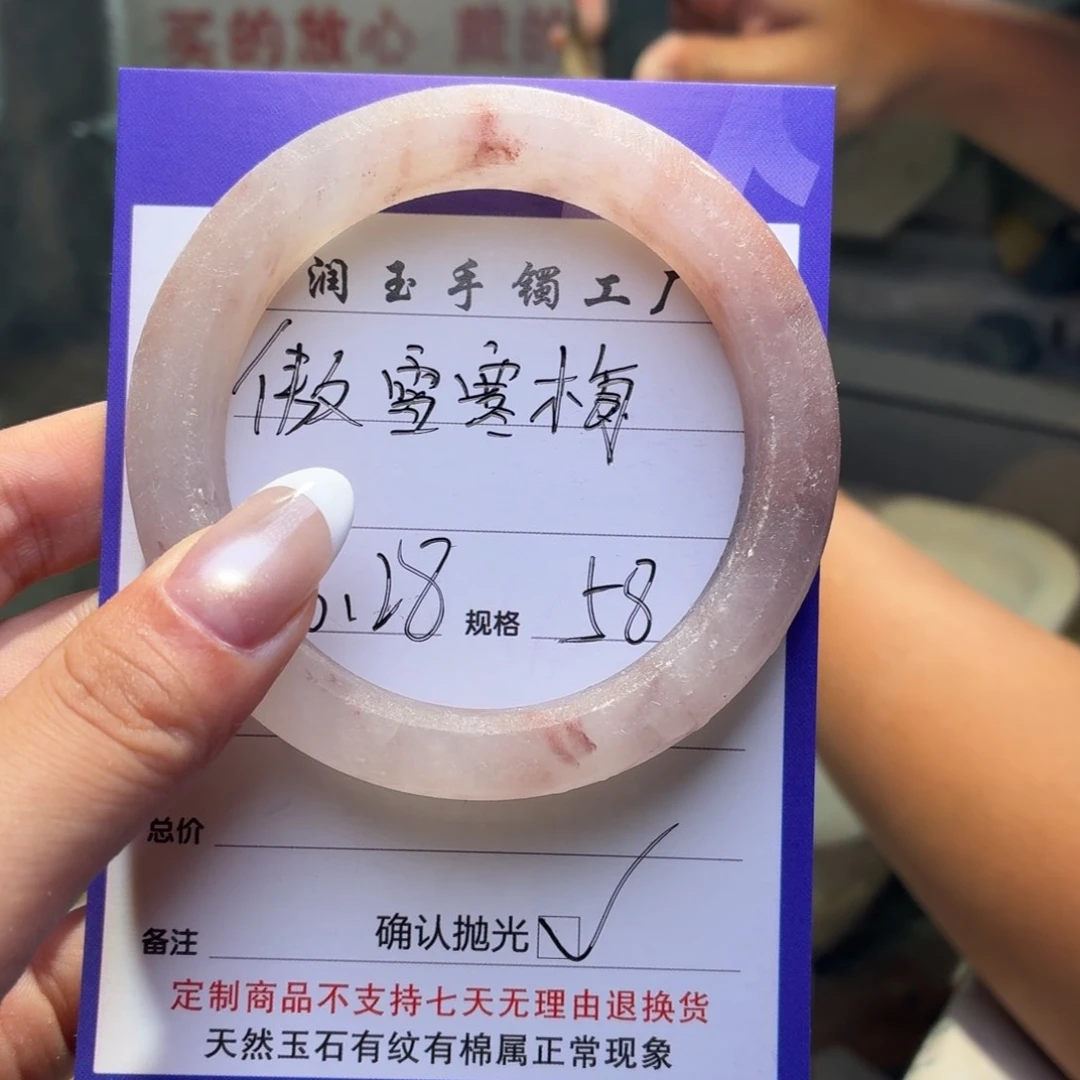 买的放心 戴的
润玉手镯工厂
傲雪寒梅
.128 规格 58
总价
备注 确认抛光
定制商品不支持七天无理由退换货
天然玉石有纹有棉属正常现象